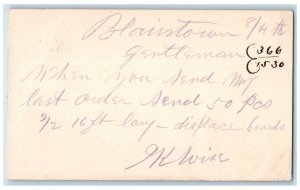 Blairstown 8/4th
Gentleman
366
1530
When you send my
last order send 50 pcs
1/2 16 ft long - displace boards
WK Wise